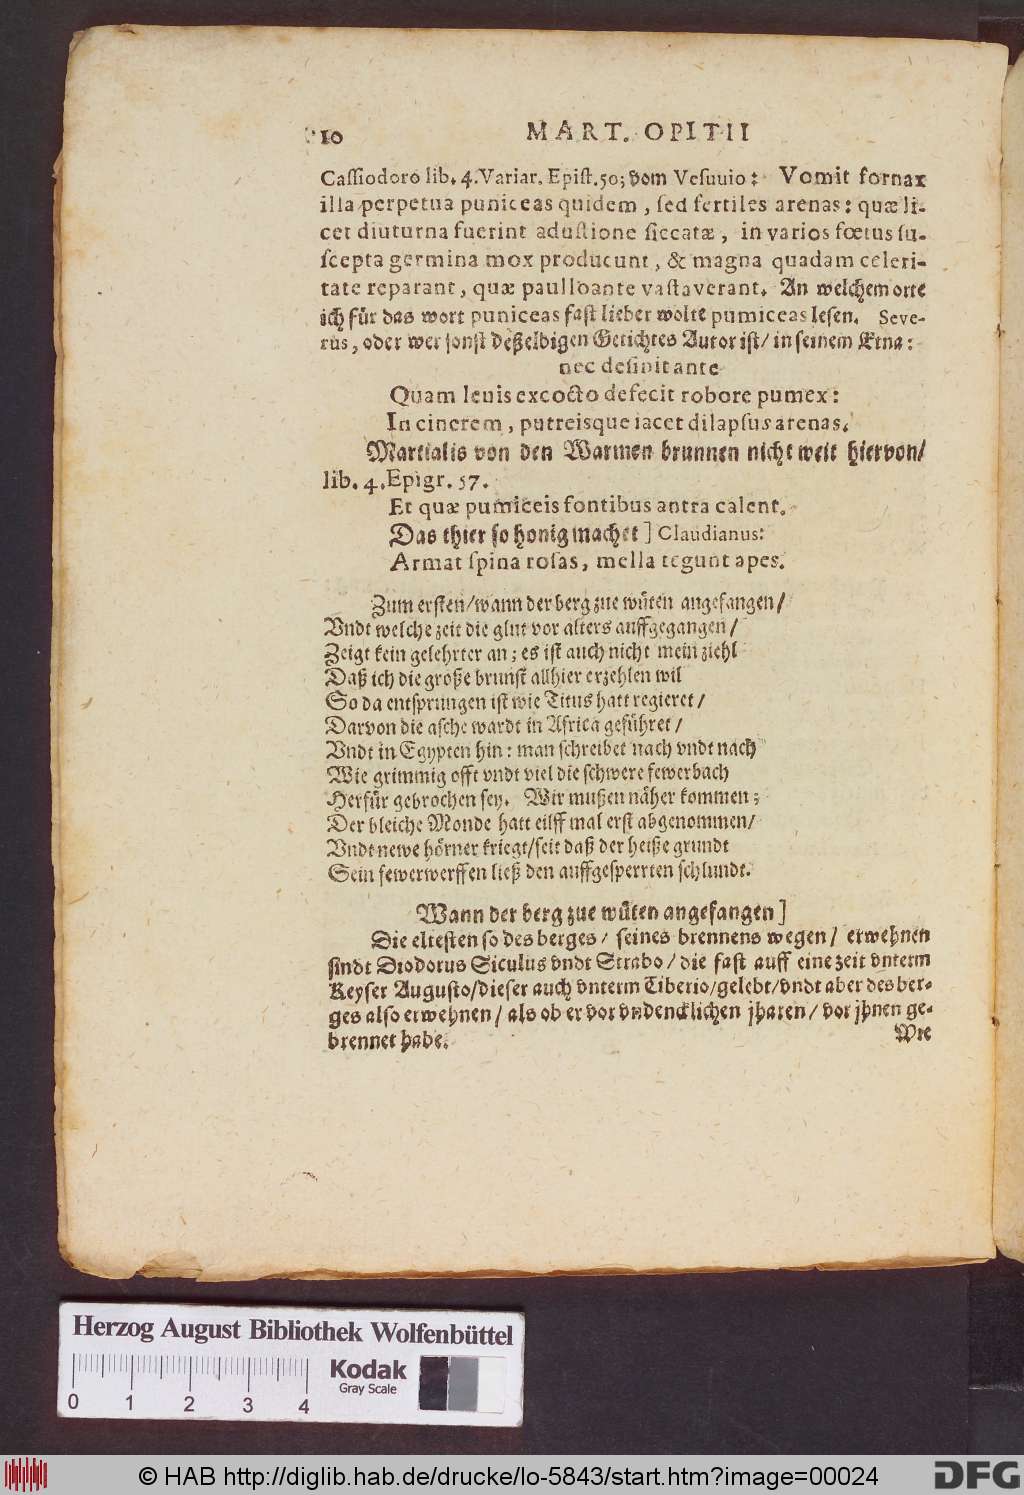 10 MART. OPITII
Cassiodoro lib. 4. Variar. Epist. 50; vom Vesuuio: Vomit fornax
illa perpetua puniceas quidem, sed fertiles arenas: quæ li-
cet diuturna fuerint adustione siccatæ, in varios fœtus su-
scepta germina mox producunt, & magna quadam celeri-
tate reparant, quæ paulloante vastaverant. An welchem orte
ich für das wort puniceas fast lieber wolte pumiceas lesen. Seve-
rus, oder wer sonst deßelbigen Getichtes Autor ist/ in seinem Ætna:
nec desinit ante
Quam levis excocto defecit robore pumex:
In cinerem, putreisque iacet dilapsus arenas.
Martialis von den Warmen brunnen nicht weit hiervon/
lib. 4. Epigr. 57.
Et quæ pumiceis fontibus antra calent.
Das thier so honig machet ] Claudianus:
Armat spina rosas, mella tegunt apes.
Zum ersten/ wann der berg zue wüten angefangen/
Vndt welche zeit die glut vor alters auffgegangen/
Zeigt kein gelehrter an; es ist auch nicht mein ziehl
Daß ich die große brunst allhier erzehlen wil
So da entsprungen ist wie Titus hatt regieret/
Darvon die asche wardt in Africa geführet/
Vndt in Egypten hin: man schreibet nach vndt nach
Wie grimmig offt vndt viel die schwere fewerbach
Herfür gebrochen sey. Wir mußen näher kommen;
Der bleiche Monde hatt eilff mal erst abgenommen/
Vndt newe hörner kriegt/ seit daß der heiße grundt
Sein fewerwerffen ließ den auffgesperrten schlundt.
Wann der berg zue wüten angefangen ]
Die eltesten so des berges/ seines brennens wegen/ erwehnen
sindt Diodorus Siculus vndt Strabo/ die fast auff eine zeit vnterm
Keyser Augusto/ dieser auch vnterm Tiberio/ gelebt/ vndt aber des ber-
ges also erwehnen/ als ob er vor vndencklichen jharen/ vor jhnen ge-
brennet habe. Wie
Herzog August Bibliothek Wolfenbüttel
Kodak
Gray Scale
0 1 2 3 4
© HAB http://diglib.hab.de/drucke/lo-5843/start.htm?image=00024
DFG